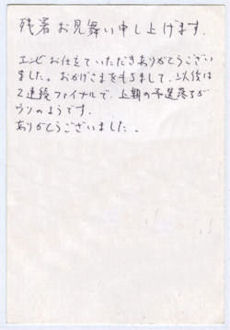 残暑お見舞い申し上げます。
エンビお仕立ていただきありがとうござい
ました。おかげさまをもちまして、以後は
2連続ファイナルで、上期の予選落ちが
ウソのようです。
ありがとうございました。